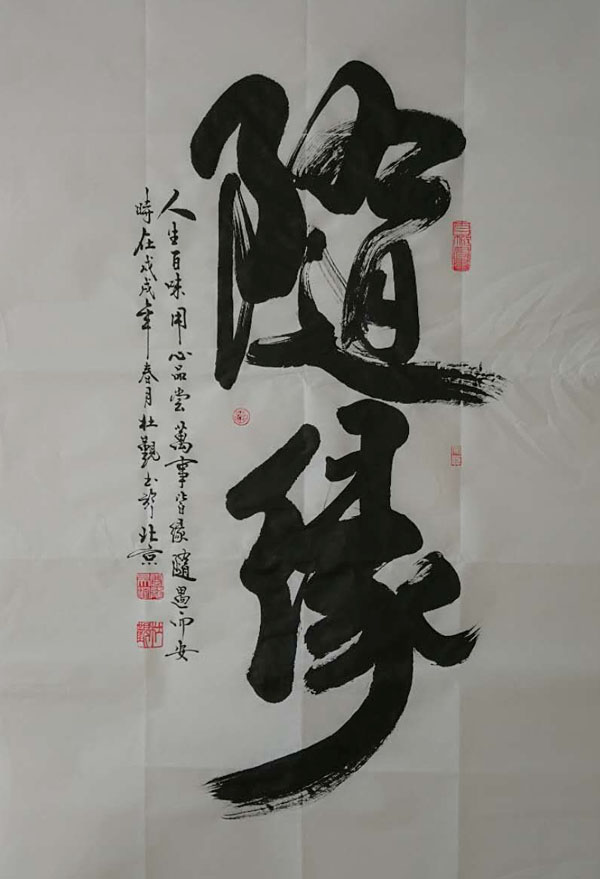 隨緣
人生百味用心品尝萬事皆緣隨遇而安
時在戊戌年春月杜觀书於北京